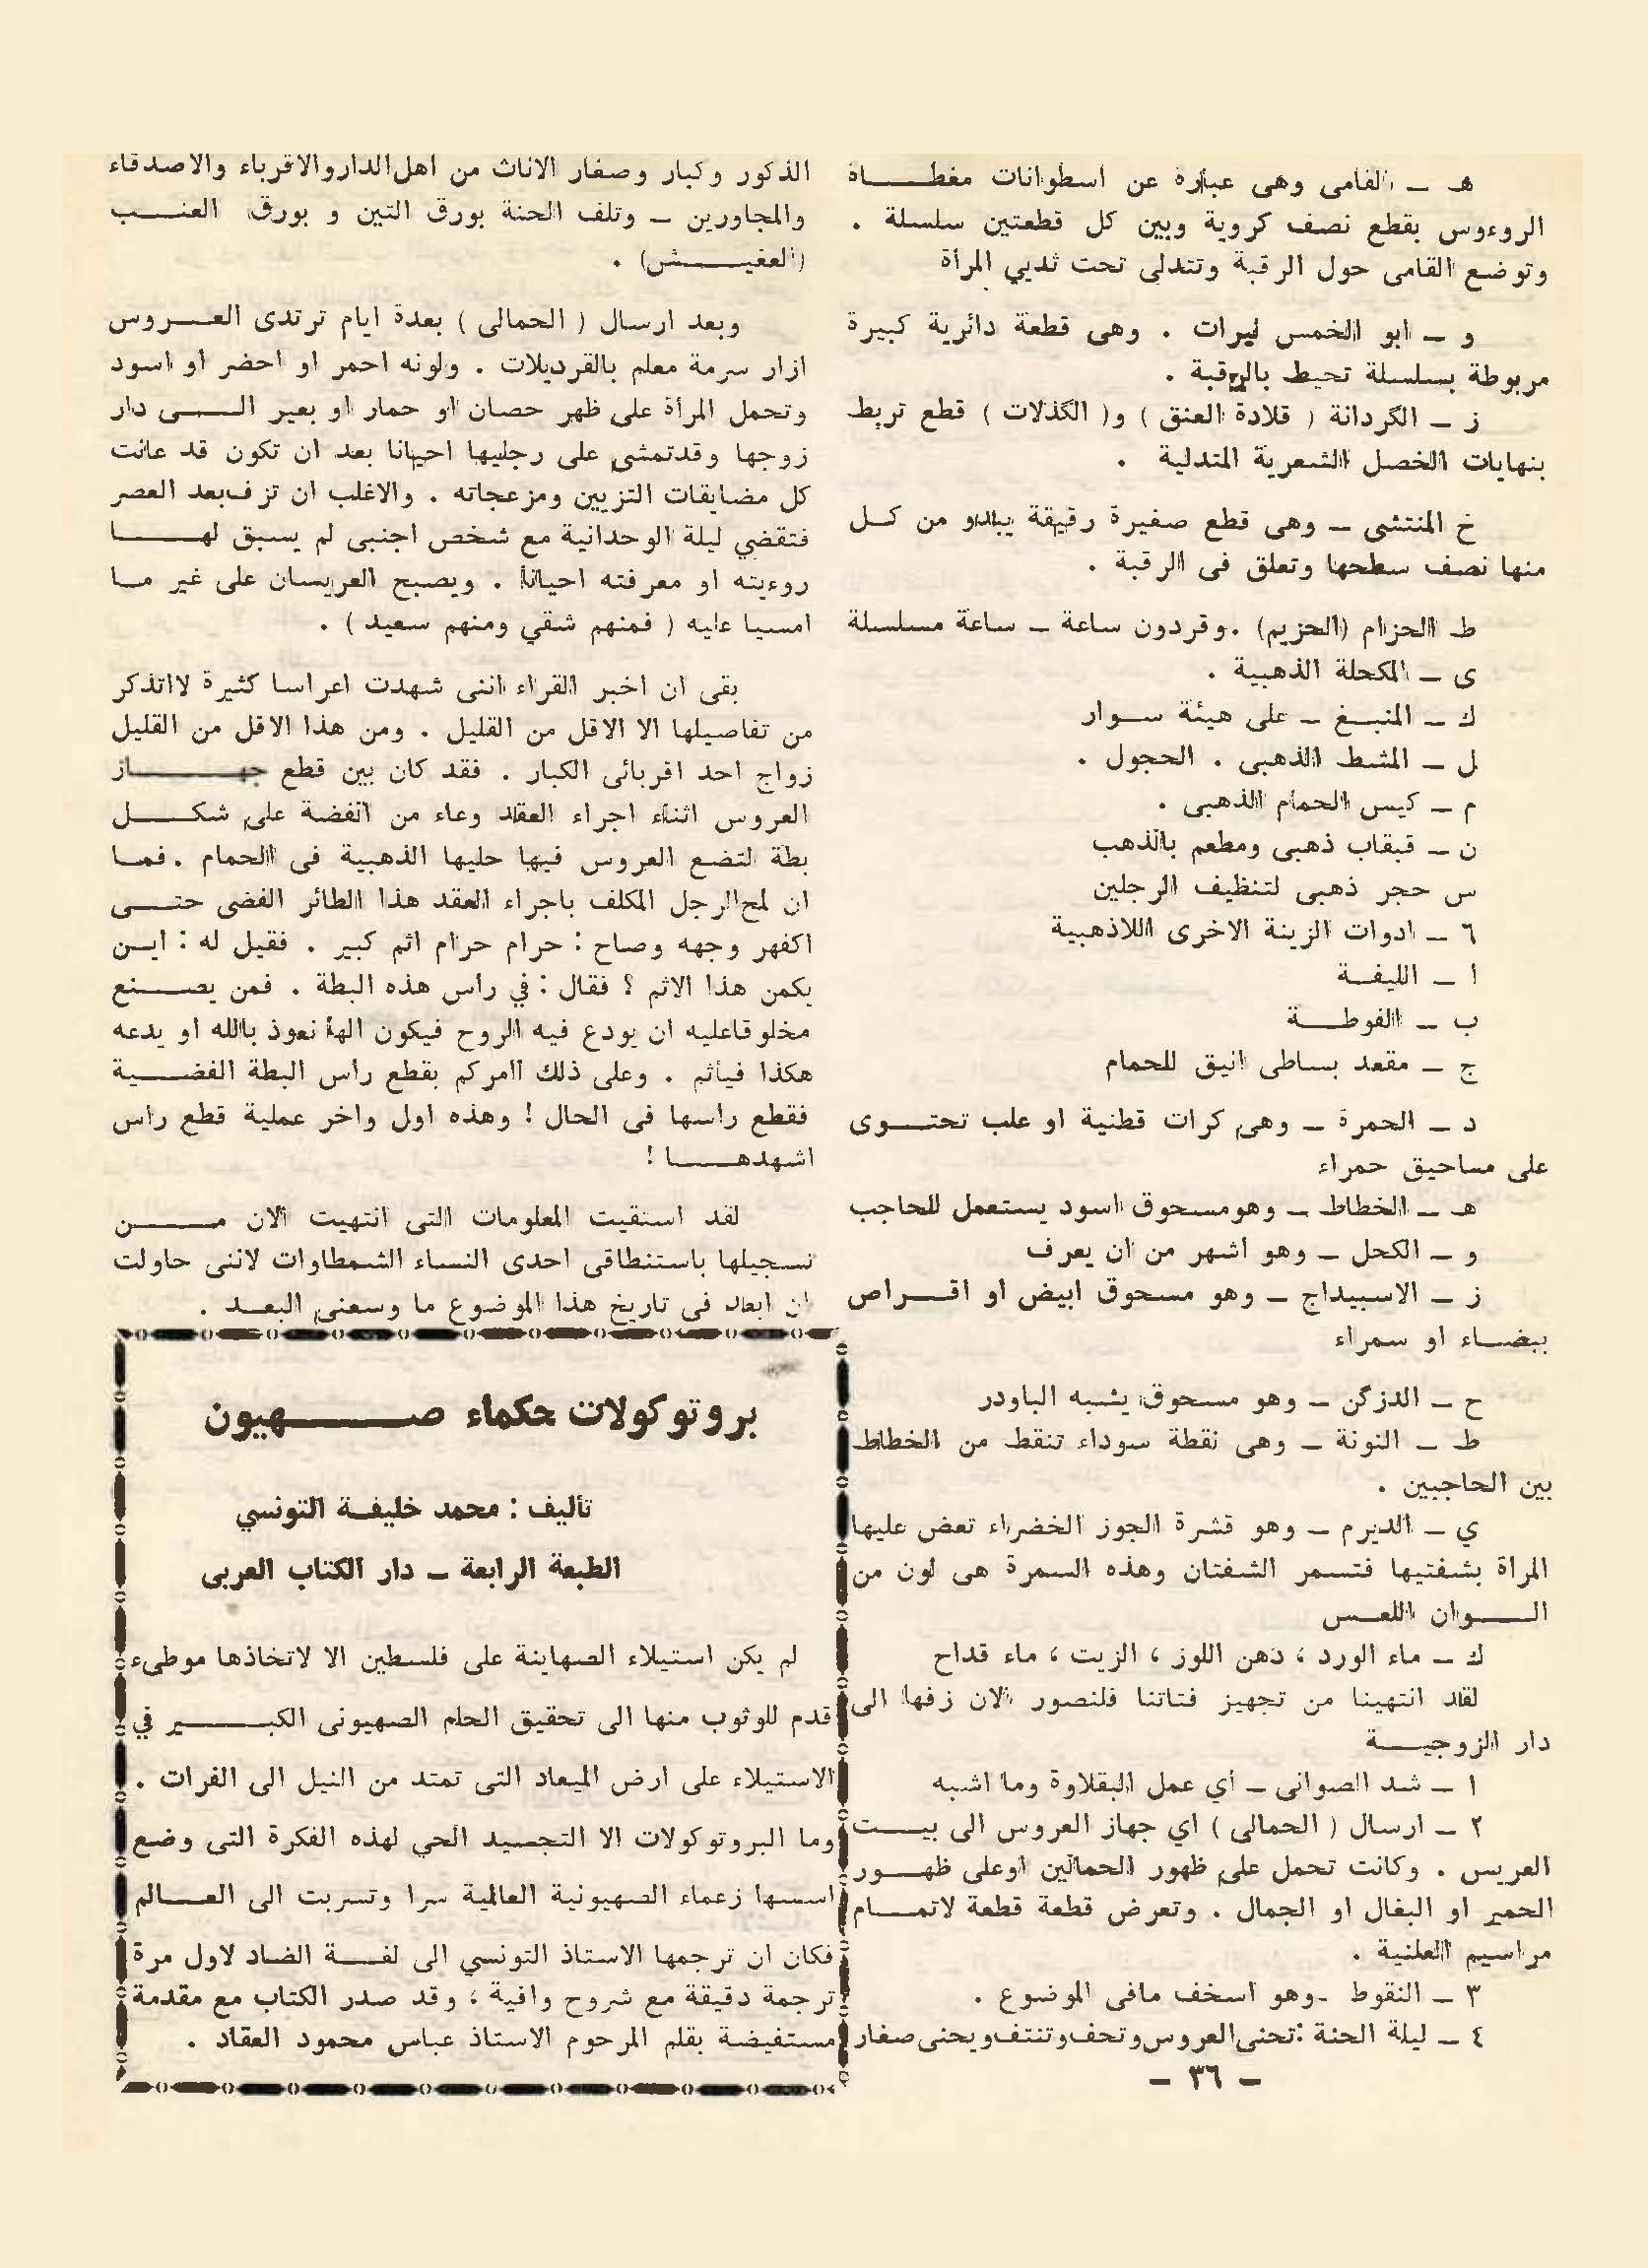 هـ ــ القامى وهى عبارة عن اسطوانات مغطـــاة
الروءوس بقطع نصف كروية وبين كل قطعتين سلسلة .
وتوضع القامى حول الرقبة وتتدلى تحت ثديي المرأة
و ــ ابو الخمس ليرات . وهى قطعة دائرية كبيرة
مربوطة بسلسلة تحيط بالرقبة .
ز ــ الگردانة ( قلادة العنق ) و( الگذلات ) قطع تربط
بنهايات الخصل الشعرية المتدلية .
خ المنتشى ــ وهى قطع صغيرة رقيقة يبدو من كـل
منها نصف سطحها وتعلق فى الرقبة .
ط الحزام (الحزيم) .وقردون ساعة ــ ساعة مسلسلة
ى ــ المكحلة الذهبية .
ك ــ المنبـغ ــ على هيئة سـوار
ل ــ المشط الذهبى . الحجول .
م ــ كيس الحمام الذهبى .
ن ــ قبقاب ذهبى ومطعم بالذهب
س حجر ذهبى لتنظيف الرجلين
٦ ــ ادوات الزينة الاخرى اللاذهبية
ا ــ الليفـة
ب ــ الفوطـــة
ج ــ مقعد بساطى انيق للحمام
د ــ الحمرة ــ وهى كرات قطنية او علب تحتـــوى
على مساحيق حمراء
هـ ــ الخطاط ــ وهومسحوق اسود يستعمل للحاجب
و ــ الكحل ــ وهو اشهر من ان يعرف
ز ــ الاسبيداج ــ وهو مسحوق ابيض او اقـــراص
بيضـاء او سمراء
ح ــ الدزگن ــ وهو مسحوق يشبه الباودر
ط ــ النونة ــ وهى نقطة سوداء تنقط من الخطاط
بين الحاجبين .
ي ــ الديرم ــ وهو قشرة الجوز الخضراء تعض عليها
المراة بشفتيها فتسمر الشفتان وهذه السمرة هى لون من
الـــوان اللعـس
ك ــ ماء الورد ، دهن اللوز ، الزيت ، ماء قداح
لقد انتهينا من تجهيز فتاتنا فلنصور الان زفها الى
دار الزوجيـــة
١ ــ شد الصوانى ــ أي عمل البقلاوة وما اشبه
٢ ــ ارسال ( الحمالى ) اي جهاز العروس الى بيــت
العريس . وكانت تحمل على ظهور الحمالين اوعلى ظهـــور
الحمير او البغال او الجمال . وتعرض قطعة قطعة لاتمـــام
مراسيم العلنية .
٣ ــ النقوط ـ وهو اسخف مافى الموضوع .
٤ ــ ليلة الحنة :تحنى العروس وتحف وتنتف ويحنى صغار
ــ ٣٦ ــ
الذكور وكبار وصغار الاناث من اهل الدار والاقرباء والاصدقاء
والمجاورين ــ وتلف الحنة بورق التين و بورق العنـــب
(العفيـــش) .
وبعد ارسال ( الحمالى ) بعدة ايام ترتدى العـــروس
ازار سرمة معلم بالقرديلات . ولونه احمر او احضر او اسود
وتحمل المرأة على ظهر حصان او حمار او بعير الـــى دار
زوجها وقدتمشى على رجليها احيانا بعد ان تكون قد عانت
كل مضايقات التزيين ومزعجاته . والاغلب ان تزف بعد العصر
فتقضي ليلة الوحدانية مع شخص اجنبى لم يسبق لهـــا
روءيته او معرفته احيانا . ويصبح العريسان على غير مـا
امسيا عليه ( فمنهم شقي ومنهم سعيد ) .
بقى ان اخبر القراء اننى شهدت اعراسا كثيرة لااتذكر
من تفاصيلها الا الاقل من القليل . ومن هذا الاقل من القليل
زواج احد اقربائى الكبار . فقد كان بين قطع جهـــاز
العروس اثناء اجراء العقد وعاء من الفضة على شكـــل
بطة لتضع العروس فيها حليها الذهبية فى الحمام . فمـا
ان لمح الرجل المكلف باجراء العقد هذا الطائر الفضى حتـــى
اكفهر وجهه وصاح : حرام حرام اثم كبير . فقيل له : ايـن
يكمن هذا الاثم ؟ فقال : في راس هذه البطة . فمن يصـــنع
مخلوقاعليه ان يودع فيه الروح فيكون الها نعوذ بالله او يدعه
هكذا فيأثم . وعلى ذلك اامركم بقطع راس البطة الفضـــية
فقطع راسها فى الحال ! وهذه اول واخر عملية قطع راس
اشهدهـــا !
لقد استقيت المعلومات التى انتهيت الان مـــن
تسجيلها باستنطاقى احدى النساء الشمطاوات لاننى حاولت
ان ابعد فى تاريخ هذا الموضوع ما وسعنى البعـد .
بروتوكولات حكماء صـــهيون
تأليف : محمد خليفـة التونسي
الطبعة الرابعة ــ دار الكتاب العربى
لم يكن استيلاء الصهاينة على فلسطين الا لاتخاذها موطىء
قدم للوثوب منها الى تحقيق الحلم الصهيونى الكبـــير في
الاستيلاء على ارض الميعاد التى تمتد من النيل الى الفرات .
وما البروتوكولات الا التجسيد الحي لهذه الفكرة التى وضع
اسسها زعماء الصهيونية العالمية سرا وتسربت الى العـــالم
فكان ان ترجمها الاستاذ التونسي الى لغـــة الضاد لاول مرة
ترجمة دقيقة مع شروح وافية ، وقد صدر الكتاب مع مقدمة
مستفيضة بقلم المرحوم الاستاذ عباس محمود العقاد .